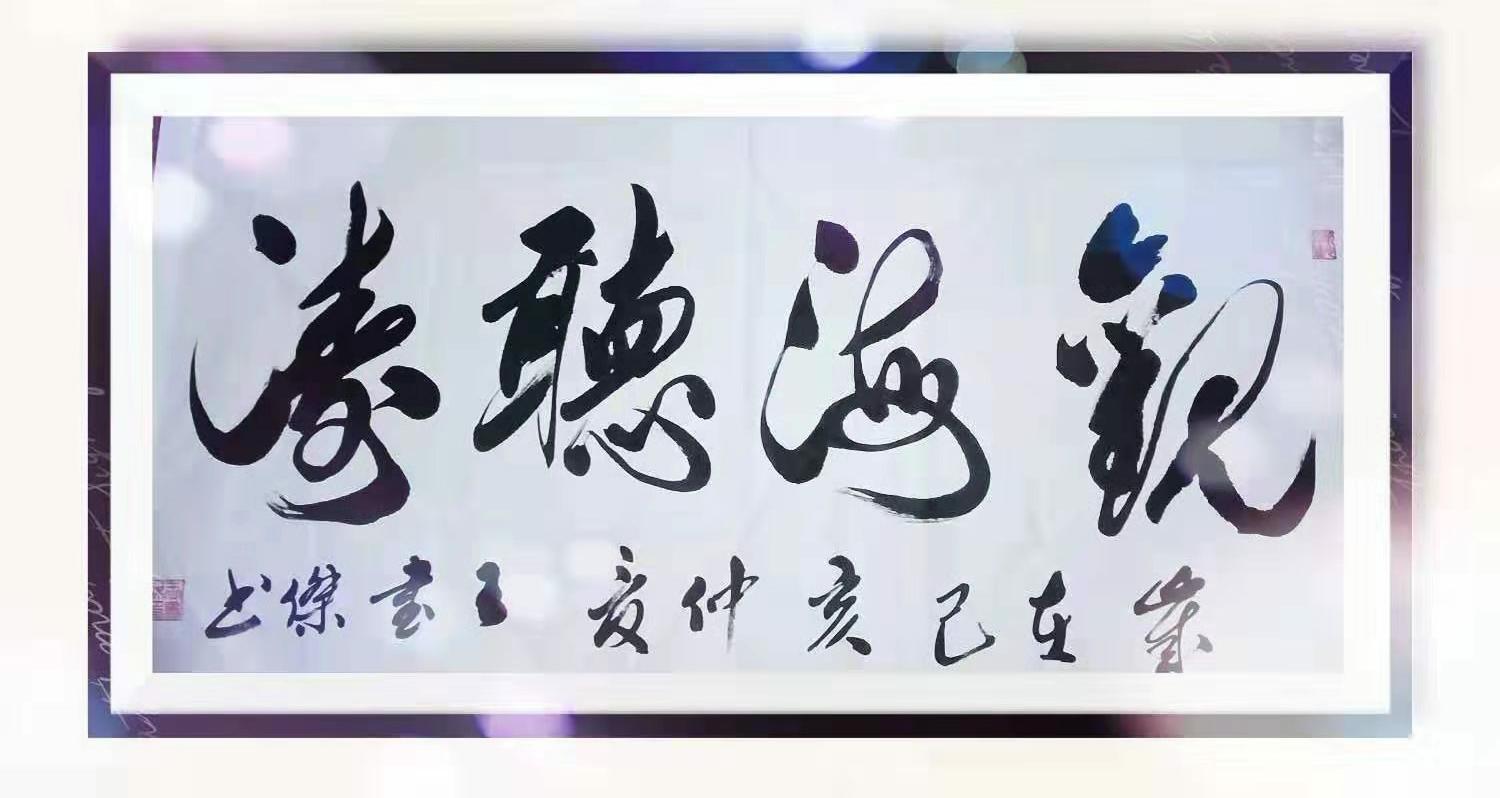 觀海聽濤
歲在己亥仲夏王書傑書